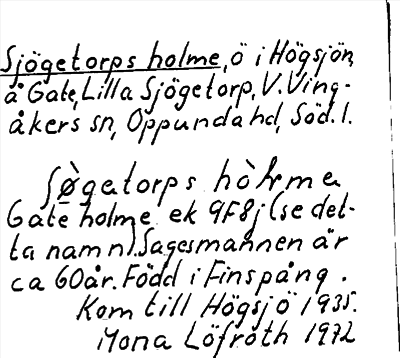 Sjögetorps holme, ö i Högsjön,
å Gate, Lilla Sjögetorp, V. Ving-
åkers sn, Oppunda hd, Söd. l.
holme
Gate holme ek 9F8j (se det-
ta namn). Sagesmannen är
ca 60 år. Född i Finspång.
Kom till Högsjö 1935.
Mona Löfroth 1972